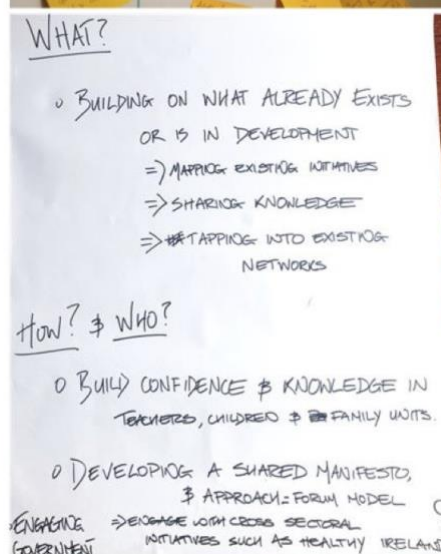 WHAT?
o BUILDING ON WHAT ALREADY EXISTS
OR IS IN DEVELOPMENT
=> MAPPING EXISTING INITIATIVES
=> SHARING KNOWLEDGE
=> TAPPING INTO EXISTING
NETWORKS
HOW? & WHO?
o BUILD CONFIDENCE & KNOWLEDGE IN
TEACHERS, CHILDREN & FAMILY UNITS.
o DEVELOPING A SHARED MANIFESTO,
& APPROACH = FORUM MODEL
ENGAGING => ENGAGE WITH CROSS SECTORAL
GOVERNMENT INITIATIVES SUCH AS HEALTHY IRELAND